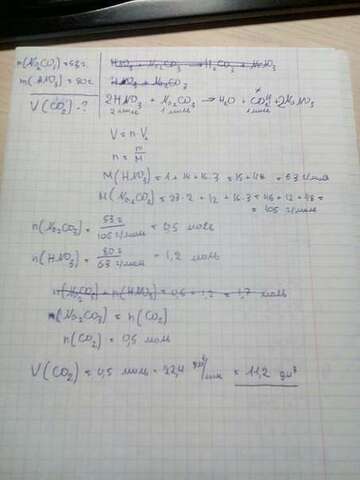 m(Na₂CO₃) = 53 г.
m(HNO₃) = 80 г.
V(CO₂) - ?
2HNO₃ + Na₂CO₃ → H₂O + CO₂↑ + 2NaNO₃
2 моль 1 моль 1 моль
V = n · Vₘ
n = m/M
M(HNO₃) = 1 + 14 + 16·3 = 15 + 48 = 63 г/моль
M(Na₂CO₃) = 23·2 + 12 + 16·3 = 46 + 12 + 48 =
= 106 г/моль
n(Na₂CO₃) = 53 г / 106 г/моль = 0,5 моль
n(HNO₃) = 80 г / 63 г/моль = 1,2 моль
n(Na₂CO₃) = n(CO₂)
n(CO₂) = 0,5 моль
V(CO₂) = 0,5 моль · 22,4 дм³/моль = 11,2 дм³